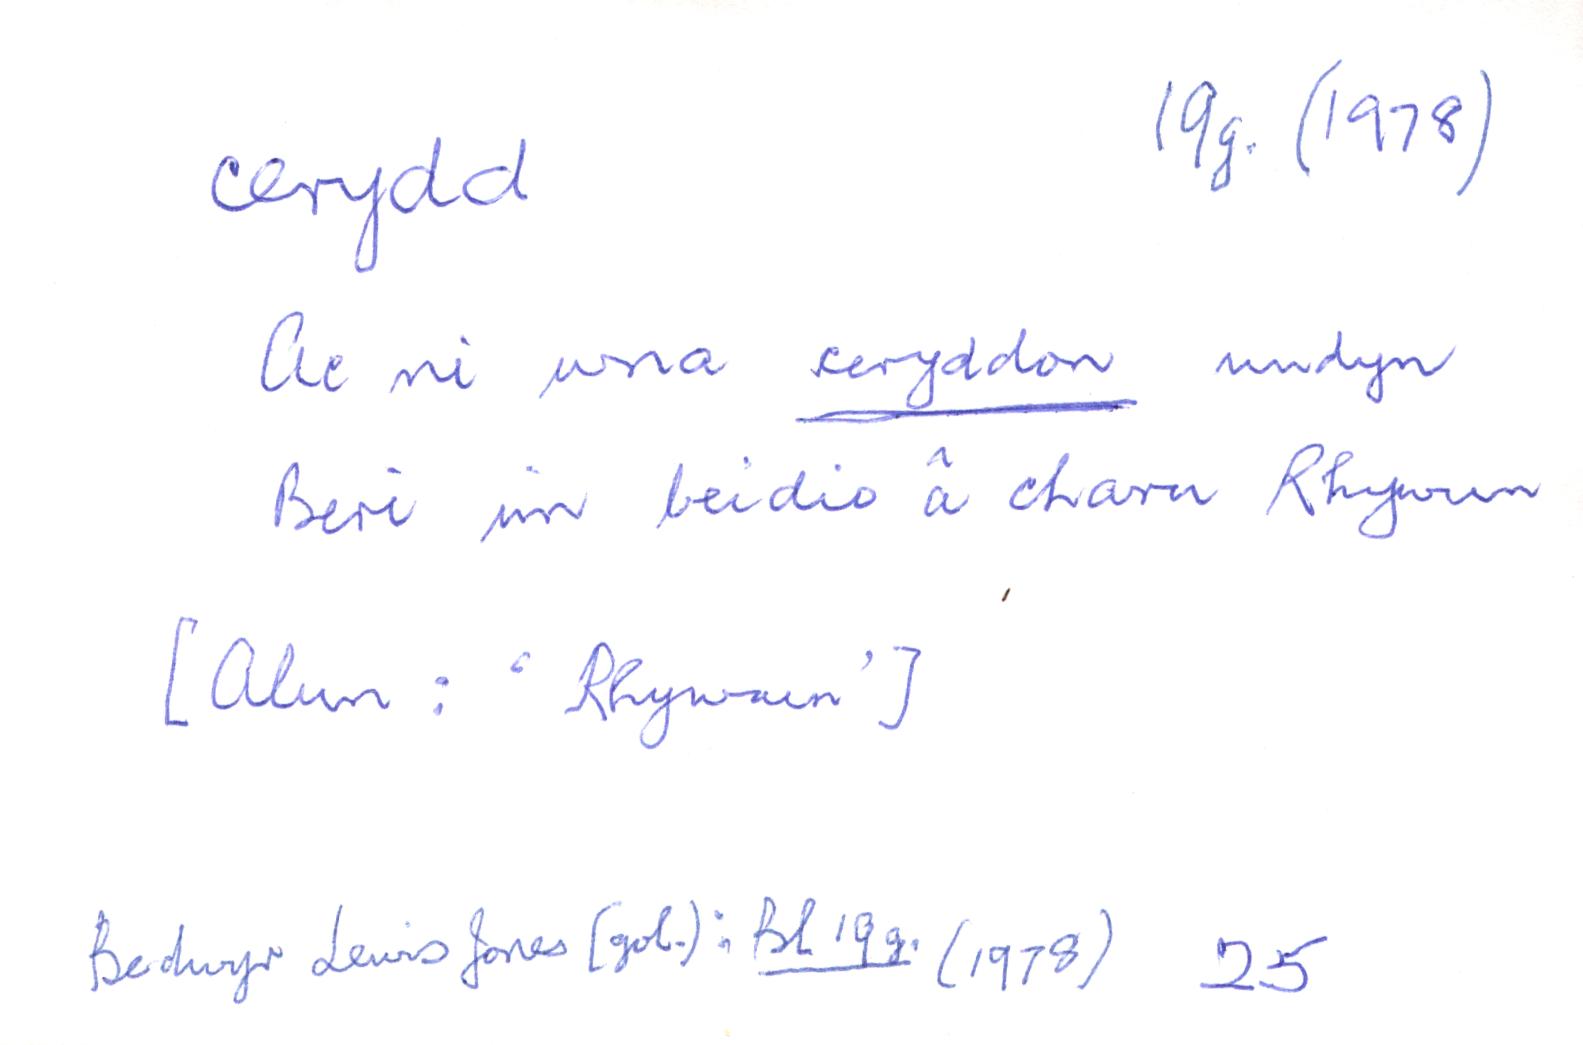 19g. (1978)
cerydd
Ac ni wna ceryddon undyn
Beri im beidio â charu Rhywun
[Alun : 'Rhywun']
Bedwyr Lewis Jones (gol.): Bl 19g. (1978) 25